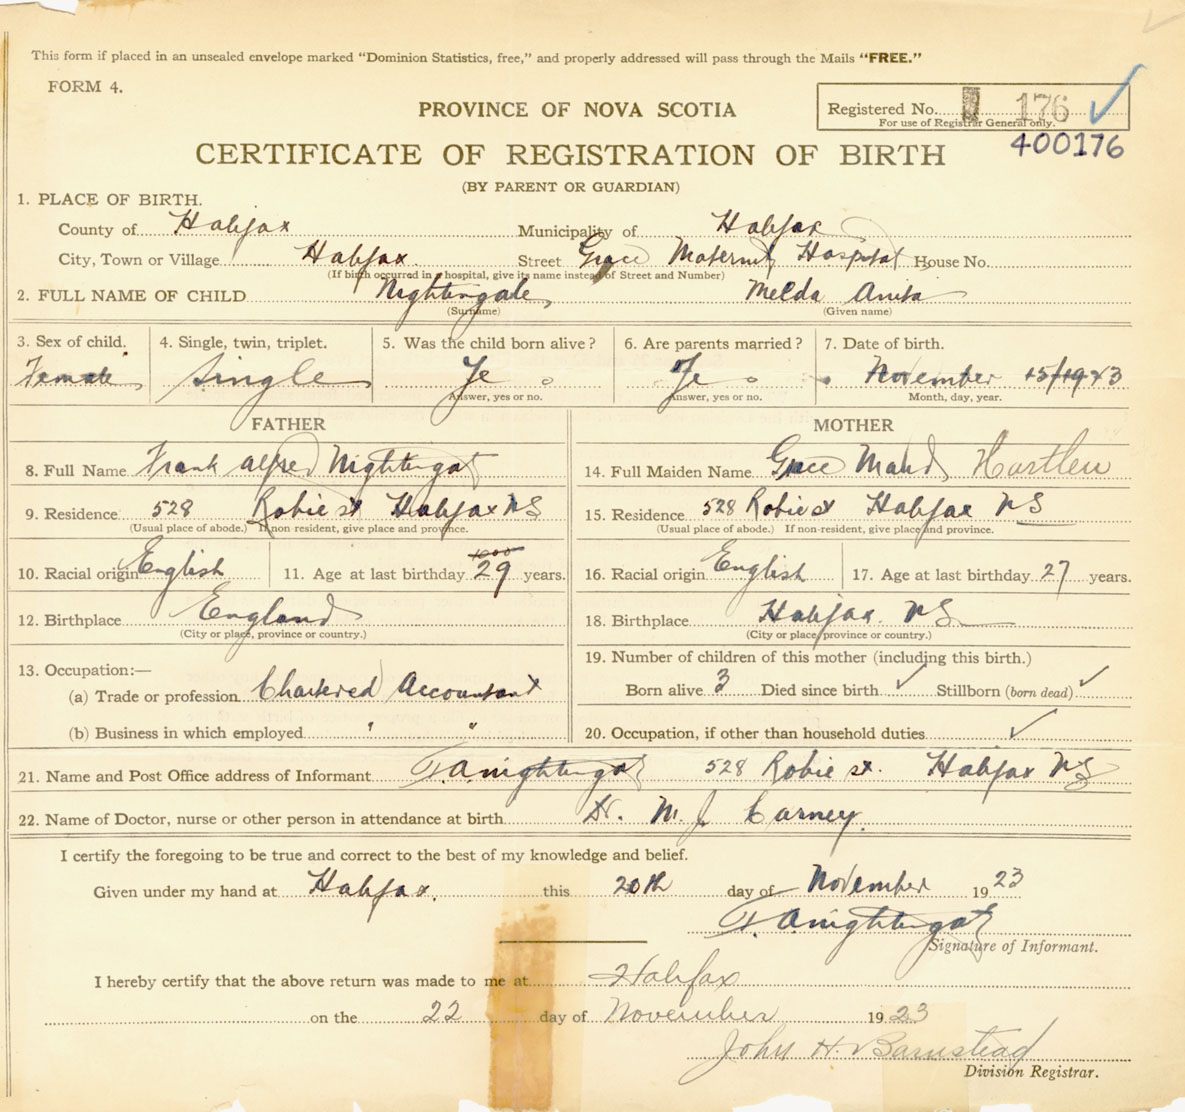 This form if placed in an unsealed envelope marked "Dominion Statistics, free," and properly addressed will pass through the Mails "FREE."
FORM 4.
PROVINCE OF NOVA SCOTIA
Registered No. 176
For use of Registrar General only.
400176
CERTIFICATE OF REGISTRATION OF BIRTH
(BY PARENT OR GUARDIAN)
1. PLACE OF BIRTH.
County of Halifax Municipality of Halifax
City, Town or Village Halifax. Street Grace Maternity Hospital House No.
(If birth occurred in hospital, give its name instead of Street and Number)
2. FULL NAME OF CHILD Nightingale, Melda Anita
(Surname) (Given name)
3. Sex of child. 4. Single, twin, triplet. 5. Was the child born alive? 6. Are parents married? 7. Date of birth.
Female Single Yes Yes November 15/1923
Answer, yes or no. Answer, yes or no. Month, day, year.
FATHER MOTHER
8. Full Name Frank Alfred Nightingale 14. Full Maiden Name Grace Maud Hartlen
9. Residence 528 Robie St Halifax NS 15. Residence 528 Robie St Halifax NS
(Usual place of abode.) If non resident, give place and province. (Usual place of abode.) If non-resident, give place and province.
10. Racial origin English 11. Age at last birthday 29 years. 16. Racial origin English 17. Age at last birthday 27 years.
12. Birthplace England 18. Birthplace Halifax. NS
(City or place, province or country.) (City or place, province or country.)
13. Occupation:— 19. Number of children of this mother (including this birth.)
(a) Trade or profession Chartered Accountant Born alive 3 Died since birth ✓ Stillborn (born dead) ✓
(b) Business in which employed " " 20. Occupation, if other than household duties ✓
21. Name and Post Office address of Informant F. A. Nightingale 528 Robie St. Halifax NS
22. Name of Doctor, nurse or other person in attendance at birth Dr. M. J. Carney.
I certify the foregoing to be true and correct to the best of my knowledge and belief.
Given under my hand at Halifax. this 20th day of November 1923
F. A. Nightingale
Signature of Informant.
I hereby certify that the above return was made to me at Halifax
on the 22 day of November 1923
John H. Barnstead
Division Registrar.